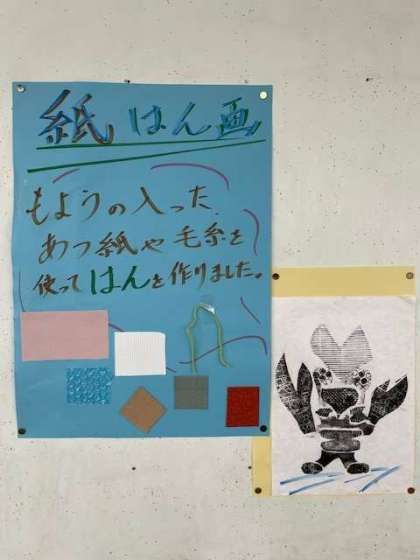 紙はん画
もようの入った
あつ紙や毛糸を
使ってはんを作りました。